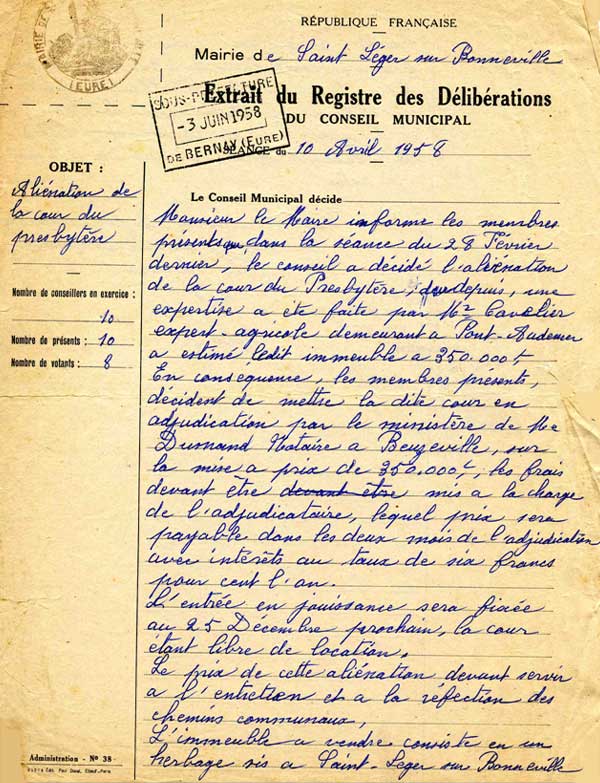 RÉPUBLIQUE FRANÇAISE
Mairie de Saint Léger sur Bonneville
(EURE)
SOUS-PRÉFECTURE
-3 JUIN 1958
DE BERNAY (EURE)
Extrait du Registre des Délibérations
DU CONSEIL MUNICIPAL
SÉANCE du 10 Avril 1958
OBJET :
Aliénation de
la cour du
presbytère
Nombre de conseillers en exercice :
10
Nombre de présents : 10
Nombre de votants : 8
Le Conseil Municipal décide
Monsieur le Maire informe les membres
présents que dans la séance du 28 Février
dernier, le conseil a décidé l'aliénation
de la cour du Presbytère, depuis, une
expertise a été faite par Mr Cavelier
expert-agricole demeurant a Pont-Audemer
a estimé ledit immeuble a 350.000f
En conséquence, les membres présents,
décident de mettre la dite cour en
adjudication par le ministère de Me
Durnand Notaire a Beuzeville, sur
la mise a prix de 350.000f, les frais
devant être devant être mis a la charge
de l'adjudicataire, lequel prix sera
payable dans les deux mois de l'adjudication
avec intérêts au taux de six francs
pour cent l'an.
L'entrée en jouissance sera fixée
au 25 Décembre prochain, la cour
étant libre de location.
Le prix de cette aliénation devant servir
a l'entretien et a la réfection des
chemins communaux,
L'immeuble a vendre consiste en un
herbage sis a Saint-Léger sur Bonneville
Administration - N° 38 -